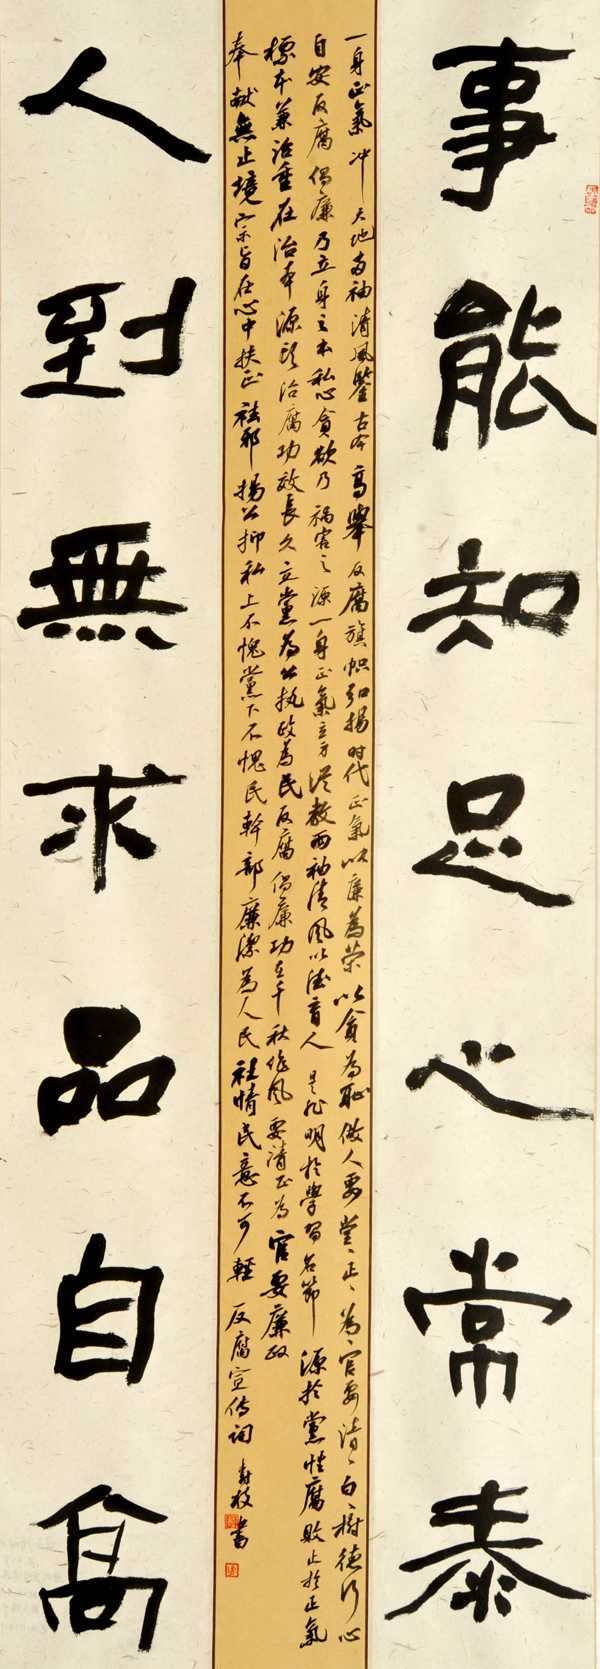 事能知足心常泰
一身正氣冲天地两袖清風鑒古今高舉反腐旗帜弘揚时代正氣以廉為荣以貪為恥做人要堂堂正正為官要清清白白樹德行心
自安反腐倡廉乃立身之本私心貪欲乃祸害之源一身正氣立方從教两袖清風以德育人是非明於學習名節源於黨性腐敗止於正氣
標本兼治重在治本源头治腐功效長久立黨為公执政為民反腐倡廉功在千秋作風要清正為官要廉政
奉献無止境宗旨在心中扶正祛邪揚公抑私上不愧黨下不愧民幹部廉潔為人民社情民意不可輕反腐宣传词
書
人到無求品自高